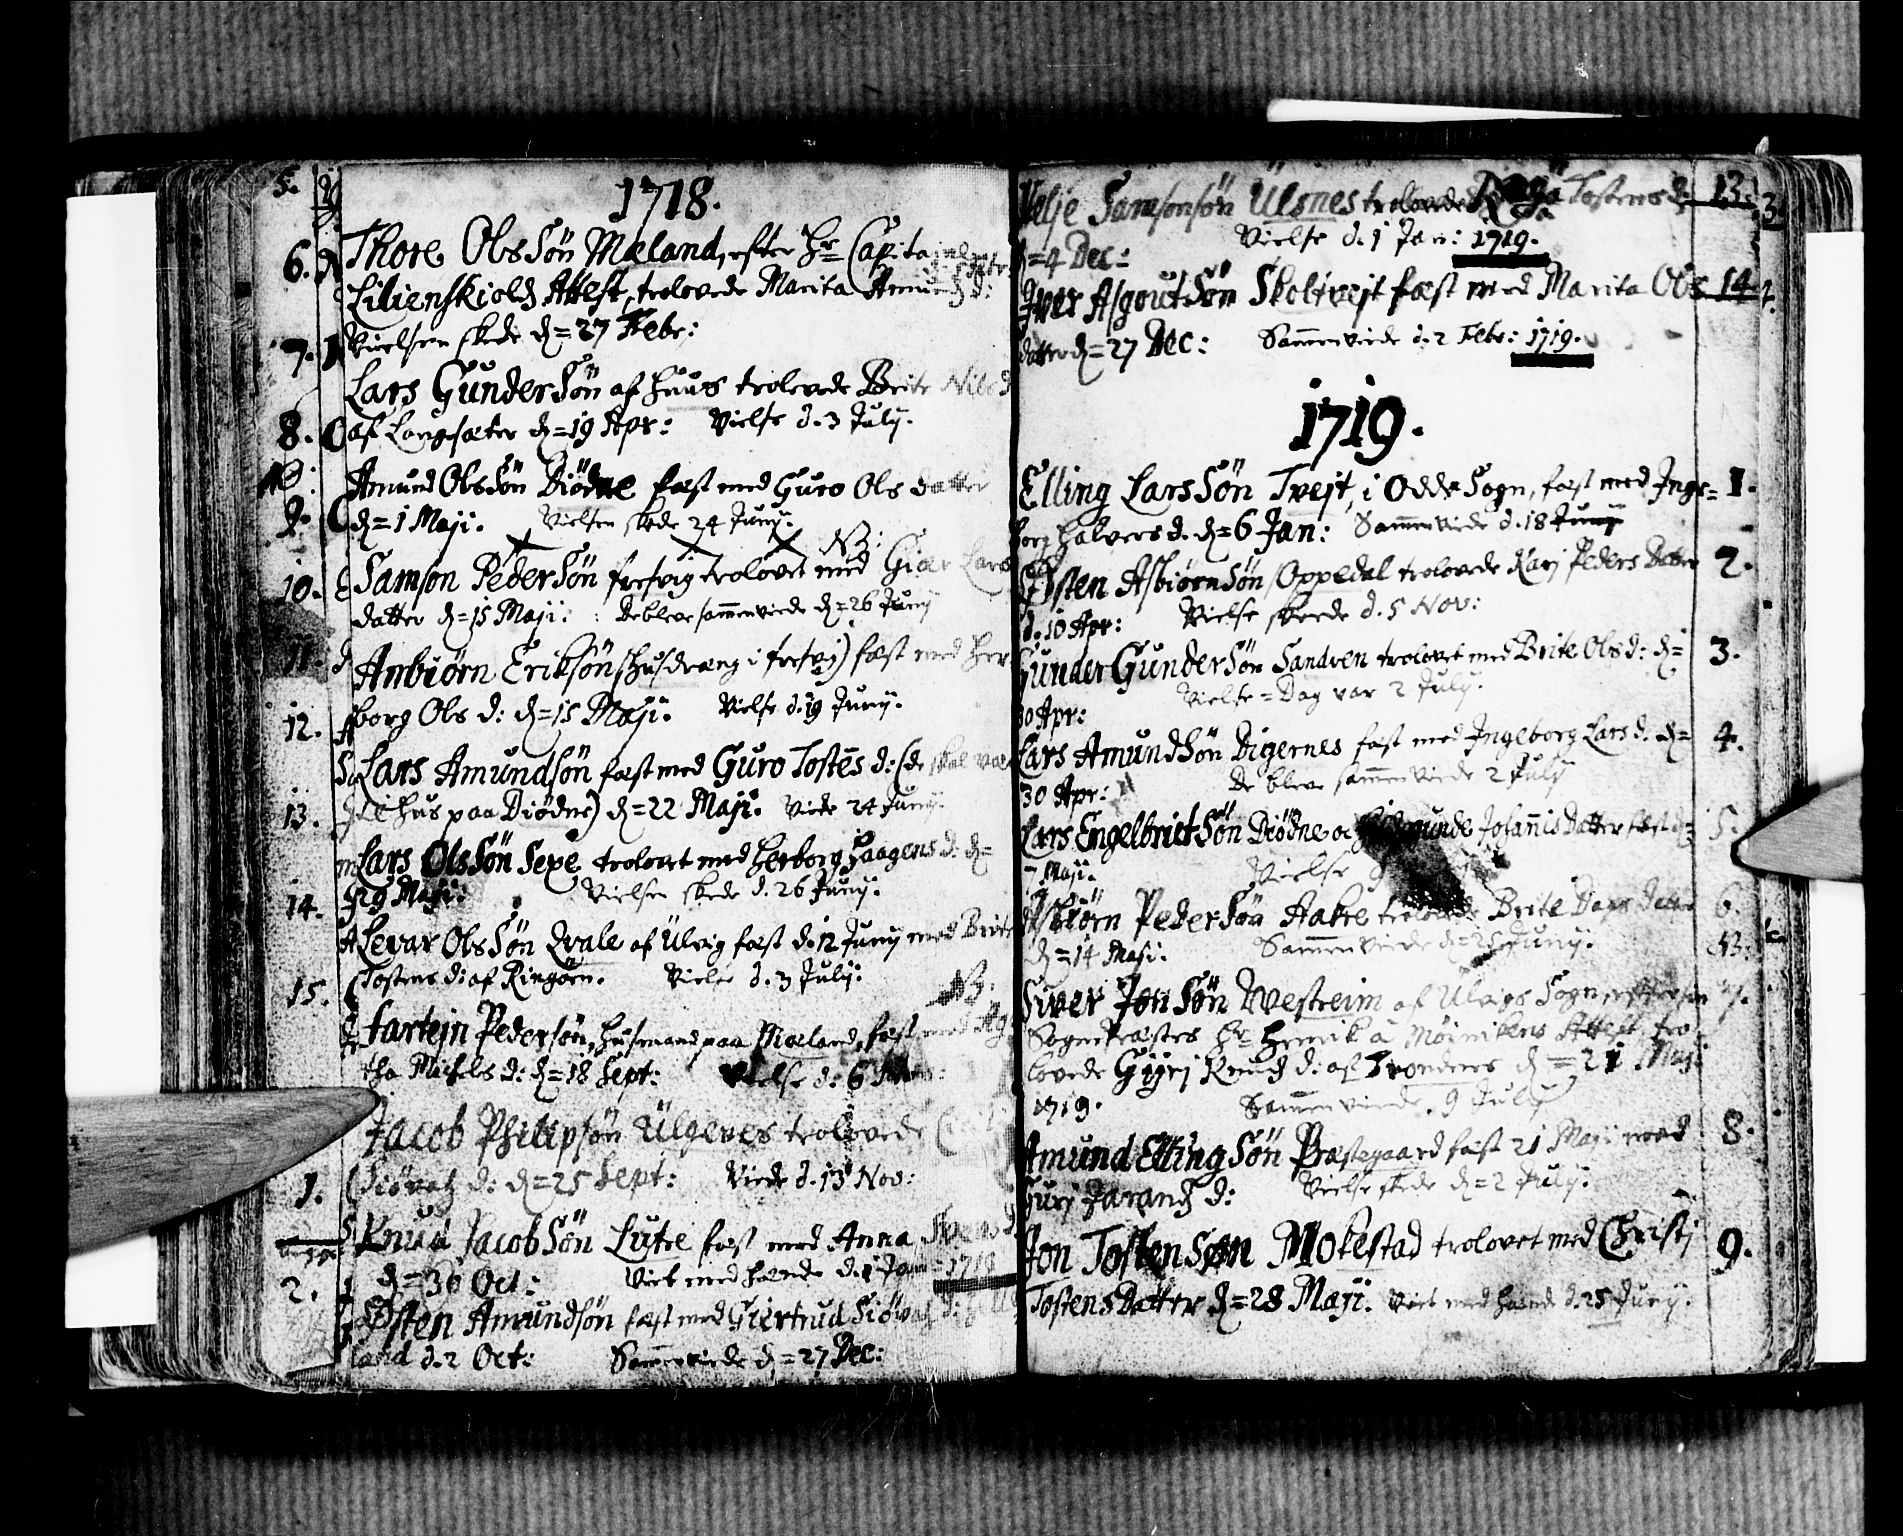 1718.
Thore Ols Søn Mæland, efter Hr Capitain
Lilienskiolds Attest, trolovede Marita Amunds d:
Vielsen skede d= 27 Febr:
Lars Gunder Søn af Huus trolovede Brite Nils d
af Langesæter d= 19 Apr: Vielse d. 3 July.
Amund Ols Søn Diødne fæst med Guro Ols datter
d= 1 Maji. Vielsen skede 24 Juny.
NB:
Samson Peder Søn fresvig trolovet med Lars
datter d= 15 Maji: De bleve sammenviede d= 26 Juny
Anbiørn Erikssøn (husdræng i fresvig) fæst med Her
borg Ols d: d= 15 Maji. Vielse d. 19 Juny.
Lars Amundsøn fæst med Guro Tostens d: (de skal være
til huus paa Diødne) d= 22 Maji. Viede 24 Juny.
Lars Ols Søn Sexe trolovet med Herborg Haagens d: d=
29 Maji: Vielsen skede d. 26 Juny.
Levar Ols Søn Qvale af Ulvig fæst d. 12 Juny med Brite
Tostens d: af Ringøen. Vielse d. 3 July:
NB.
Tartejn Pedersøn, Husmand paa Mæland, fæst med Ag
tha Michels d: d= 18 Sept: Vielse d: 6
Jacob Philipsøn Ulgenes trolovede
Siøvatz d: d= 25 Sept: Viede d. 13 Nov:
Knud Jacob Søn Lutre fæst med Anna Svens d
d= 30 Oct: Viet med hænde d. 1 Jan: 1719
Østen Amundsøn fæst med Giertrud Siøvatz d:
land d. 2 Oct: Sammenviede d= 27 Dec:
5.
6.
7.
8.
9.
10.
11.
12.
13.
14.
15.
1.
2.
Helje Samsonsøn Ulsnes trolovede Tostens d 13.
d= 4 Dec: Vielse d. 1 Jan: 1719.
Iver Asgout Søn Skoltvejt fæst med Marita Ols 14
datter d= 27 Dec: Sammenviede d. 2 Febr: 1719.
1719.
Elling Lars Søn Tvejt, i Odde Sogn, fæst med Inge= 1.
borg Halvors d. d= 6 Jan: Sammenviede d. 18 Juny
Østen Asbiørn Søn Oppedal trolovede Karj Peders Datter 2.
d. 10 Apr: Vielse skeede d. 5 Nov:
Gunder Gunder Søn Sandven trolovet med Brite Ols d: d= 3.
30 Apr: Vielse = Dag var 2 July.
Lars Amundsøn Digernes fæst med Ingeborg Lars d. d= 4.
30 Apr: De bleve sammenviede 2 July
Lars Engelbrict Søn Diødne og Johannis Datter fæst d= 5.
7 Maji. Vielse
Asbiørn Peder Søn Aakre trolovede Brite Datter 6.
d= 14 Maji. Sammenviede d= 25 Juny. NB:
Siver Jon Søn Westreim af Ulvigs Sogn, efter sin 7.
Sognepræstes Hr Henrik à Møinikens Attest, tro=
lovede Gyrj Knuds d: af Tronderes d= 21 Maji
1719. Sammenviede 9 July
Amund Elling Søn Præstegaard fæst 21 Maji med 8.
Gurj Jarands d: Vielse skede d= 2 July:
Jon Tosten Søn Mokestad trolovet med Christj 9.
Tostens Datter d= 28 Maji. Viet med hænde d. 25 Juny.